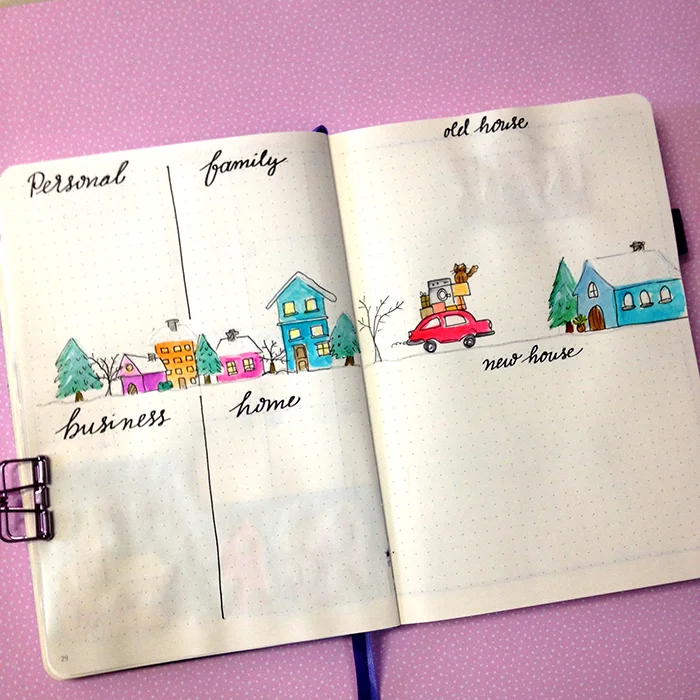 Personal
family
business
home
29
old house
new house